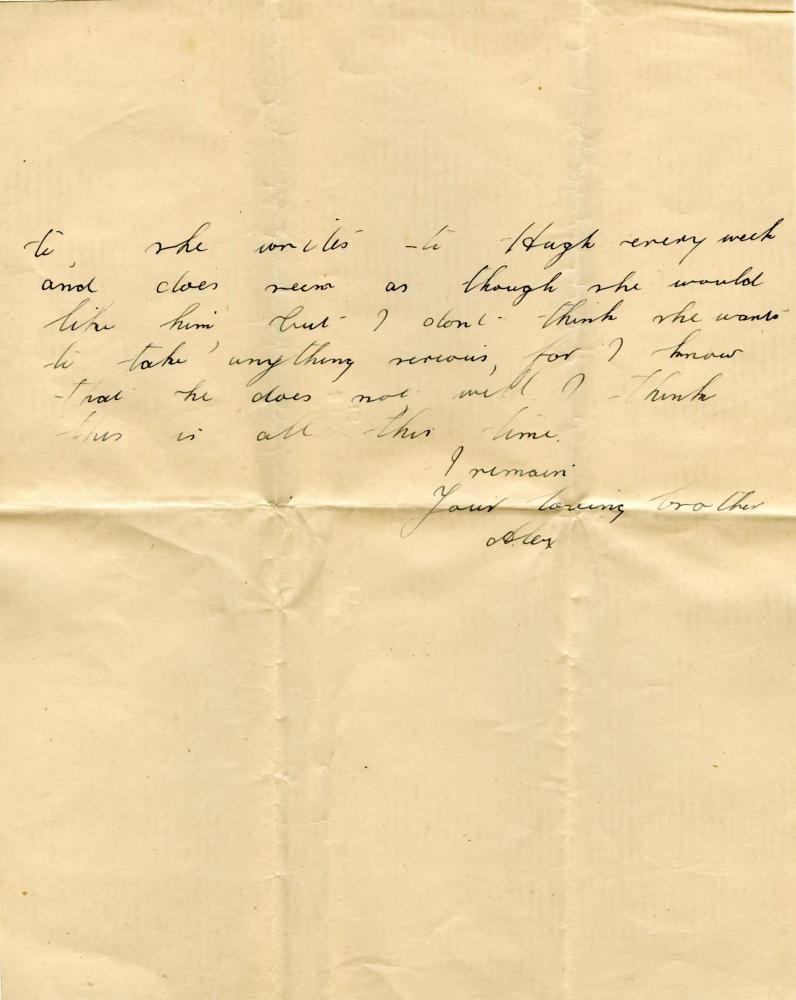 to she writes to Hugh every week
and does seem as though she would
like him but I dont think she wants
to take anything serious, for I know
that he does not well I think
this is all this time.
I remain
Your loving brother
Alex